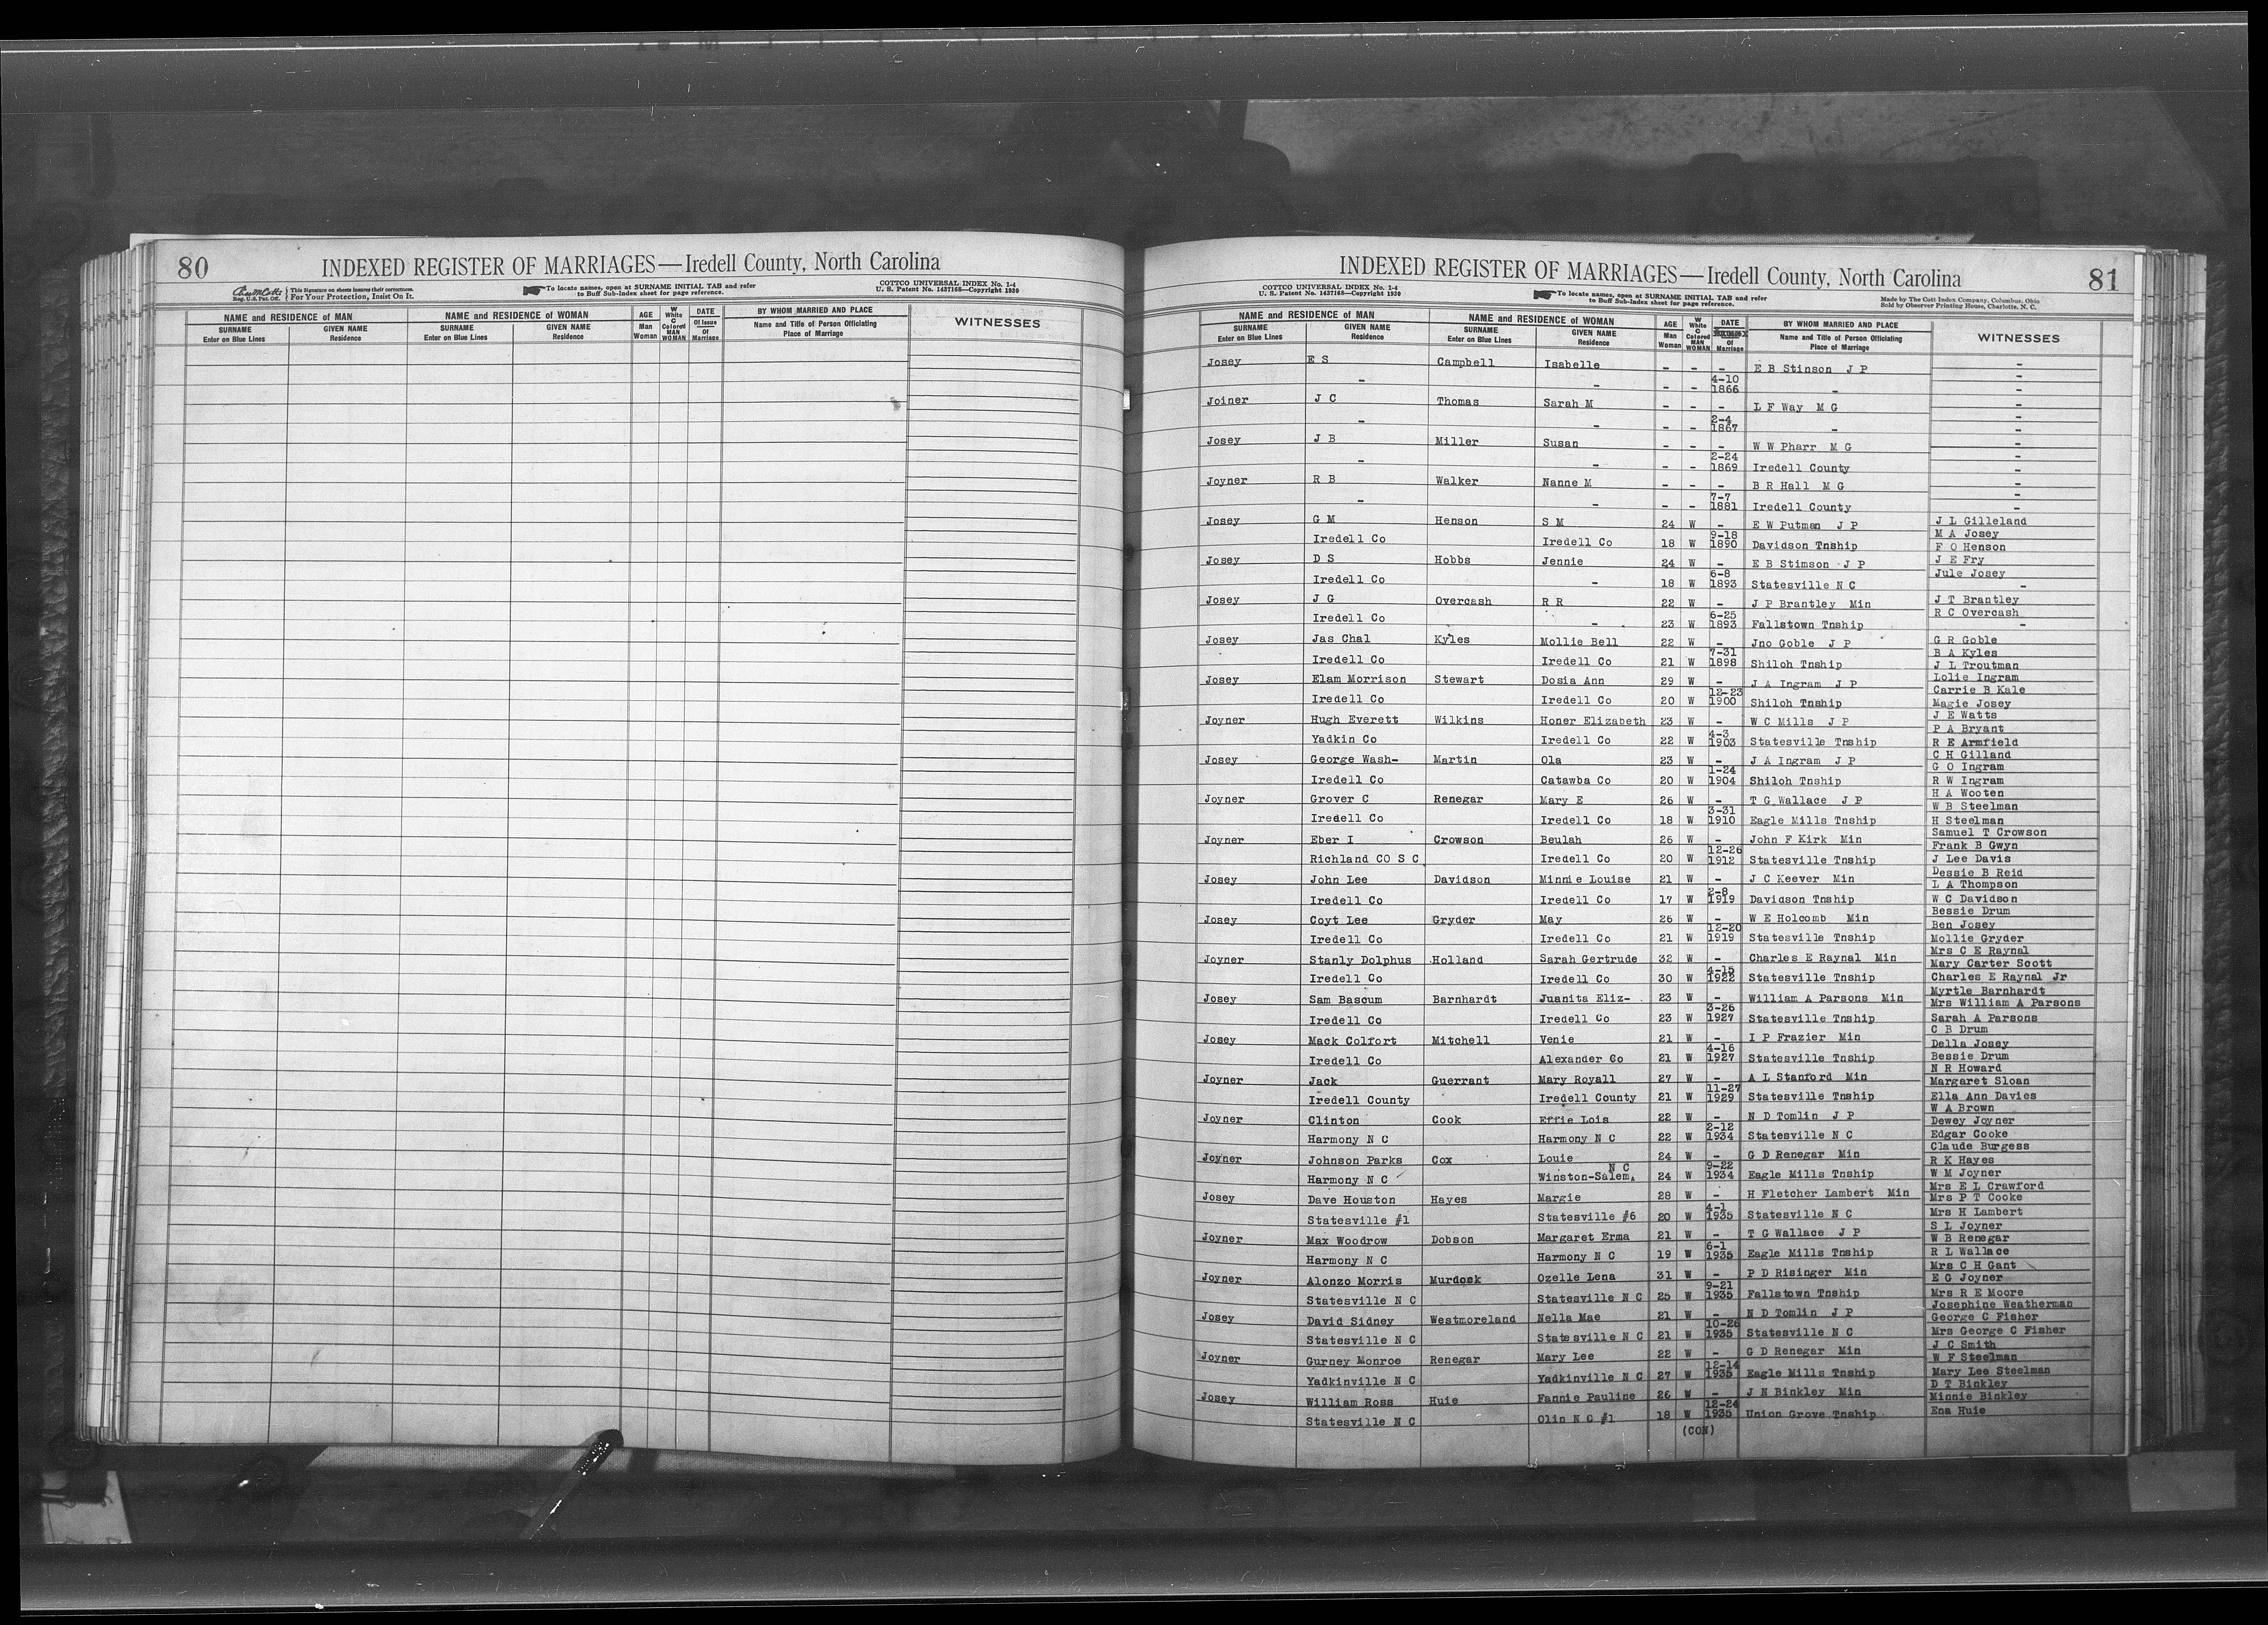 80
INDEXED REGISTER OF MARRIAGES—Iredell County, North Carolina
Reg. U.S. Pat. Off. This Signature on sheets insures their correctness. For Your Protection, Insist On It.
To locate names, open at SURNAME INITIAL TAB and refer to Buff Sub-Index sheet for page reference.
COTTCO UNIVERSAL INDEX No. 1-4
U. S. Patent No. 1437168—Copyright 1930
NAME and RESIDENCE OF MAN NAME and RESIDENCE OF WOMAN AGE W White C Colored DATE BY WHOM MARRIED AND PLACE WITNESSES
SURNAME Enter on Blue Lines GIVEN NAME Residence SURNAME Enter on Blue Lines GIVEN NAME Residence Man Woman MAN WOMAN Of Issue Of Marriage Name and Title of Person Officiating Place of Marriage
INDEXED REGISTER OF MARRIAGES—Iredell County, North Carolina
81
COTTCO UNIVERSAL INDEX No. 1-4
U. S. Patent No. 1437168—Copyright 1930
To locate names, open at SURNAME INITIAL TAB and refer to Buff Sub-Index sheet for page reference.
Made by The Cott Index Company, Columbus, Ohio
Sold by Observer Printing House, Charlotte, N. C.
NAME and RESIDENCE OF MAN NAME and RESIDENCE OF WOMAN AGE W White C Colored DATE BY WHOM MARRIED AND PLACE WITNESSES
SURNAME Enter on Blue Lines GIVEN NAME Residence SURNAME Enter on Blue Lines GIVEN NAME Residence Man Woman MAN WOMAN Of Marriage Name and Title of Person Officiating Place of Marriage
Josey E S Campbell Isabelle - - - E B Stinson J P -
- - - - 4-10 1866 - - -
Joiner J C Thomas Sarah M - - - L F Way M G -
- - - - 2-4 1867 - - -
Josey J B Miller Susan - - - W W Pharr M G -
- - - - 2-24 1869 Iredell County - -
Joyner R B Walker Nanne M - - - B R Hall M G -
- - - - 7-7 1881 Iredell County - -
Josey G M Henson S M 24 W - E W Putman J P J L Gilleland
Iredell Co Iredell Co 18 W 9-18 1890 Davidson Tnship M A Josey
F O Henson
Josey D S Hobbs Jennie 24 W - E B Stimson J P J E Fry
Iredell Co - 18 W 6-8 1893 Statesville N C Jule Josey
-
Josey J G Overcash R R 22 W - J P Brantley Min J T Brantley
Iredell Co - 23 W 6-25 1893 Fallstown Tnship R C Overcash
-
Josey Jas Chal Kyles Mollie Bell 22 W - Jno Goble J P G R Goble
Iredell Co Iredell Co 21 W 7-31 1898 Shiloh Tnship B A Kyles
J L Troutman
Josey Elam Morrison Stewart Dosia Ann 29 W - J A Ingram J P Lolie Ingram
Iredell Co Iredell Co 20 W 12-23 1900 Shiloh Tnship Carrie B Kale
Magie Josey
Joyner Hugh Everett Wilkins Honer Elizabeth 23 W - W C Mills J P J E Watts
Yadkin Co Iredell Co 22 W 4-3 1903 Statesville Tnship P A Bryant
R E Armfield
Josey George Wash- Martin Ola 23 W - J A Ingram J P C H Gilland
Iredell Co Catawba Co 20 W 1-24 1904 Shiloh Tnship G O Ingram
R W Ingram
Joyner Grover C Renegar Mary E 26 W - T G Wallace J P H A Wooten
Iredell Co Iredell Co 18 W 3-31 1910 Eagle Mills Tnship W B Steelman
H Steelman
Joyner Eber I Crowson Beulah 26 W - John F Kirk Min Samuel T Crowson
Richland CO S C Iredell Co 20 W 12-26 1912 Statesville Tnship Frank B Gwyn
J Lee Davis
Josey John Lee Davidson Minnie Louise 21 W - J C Keever Min Dessie B Reid
Iredell Co Iredell Co 17 W 2-8 1919 Davidson Tnship L A Thompson
W C Davidson
Josey Coyt Lee Gryder May 26 W - W E Holcomb Min Bessie Drum
Iredell Co Iredell Co 21 W 12-20 1919 Statesville Tnship Ben Josey
Mollie Gryder
Joyner Stanly Dolphus Holland Sarah Gertrude 32 W - Charles E Raynal Min Mrs C E Raynal
Iredell Co Iredell Co 30 W 4-15 1922 Statesville Tnship Mary Carter Scott
Charles E Raynal Jr
Josey Sam Bascum Barnhardt Juanita Eliz- 23 W - William A Parsons Min Myrtle Barnhardt
Iredell Co Iredell Co 23 W 3-26 1927 Statesville Tnship Mrs William A Parsons
Sarah A Parsons
Josey Mack Colfort Mitchell Venie 21 W - I P Frazier Min C B Drum
Iredell Co Alexander Co 21 W 4-16 1927 Statesville Tnship Della Josey
Bessie Drum
Joyner Jack Guerrant Mary Royall 27 W - A L Stanford Min N R Howard
Iredell County Iredell County 21 W 11-27 1929 Statesville Tnship Margaret Sloan
Ella Ann Davies
Joyner Clinton Cook Effie Lois 22 W - N D Tomlin J P W A Brown
Harmony N C Harmony N C 22 W 2-12 1934 Statesville N C Dewey Joyner
Edgar Cooke
Joyner Johnson Parks Cox Louie 24 W - G D Renegar Min Claude Burgess
Harmony N C Winston-Salem, N C 24 W 9-22 1934 Eagle Mills Tnship R K Hayes
W M Joyner
Josey Dave Houston Hayes Margie 28 W - H Fletcher Lambert Min Mrs E L Crawford
Statesville #1 Statesville #6 20 W 4-1 1935 Statesville N C Mrs P T Cooke
Mrs H Lambert
Joyner Max Woodrow Dobson Margaret Erma 21 W - T G Wallace J P S L Joyner
Harmony N C Harmony N C 19 W 6-1 1935 Eagle Mills Tnship W B Renegar
R L Wallace
Joyner Alonzo Morris Murdock Ozelle Lena 31 W - P D Risinger Min Mrs C H Gant
Statesville N C Statesville N C 25 W 9-21 1935 Fallstown Tnship E G Joyner
Mrs R E Moore
Josey David Sidney Westmoreland Nella Mae 21 W - N D Tomlin J P Josephine Weatherman
Statesville N C Statesville N C 21 W 10-26 1935 Statesville N C George C Fisher
Mrs George C Fisher
Joyner Gurney Monroe Renegar Mary Lee 22 W - G D Renegar Min J C Smith
Yadkinville N C Yadkinville N C 27 W 12-14 1935 Eagle Mills Tnship W F Steelman
Mary Lee Steelman
Josey William Ross Huie Fannie Pauline 26 W - J N Binkley Min D T Binkley
Statesville N C Olin N C #1 18 W 12-24 1935 Union Grove Tnship Minnie Binkley
Ena Huie
(CON)